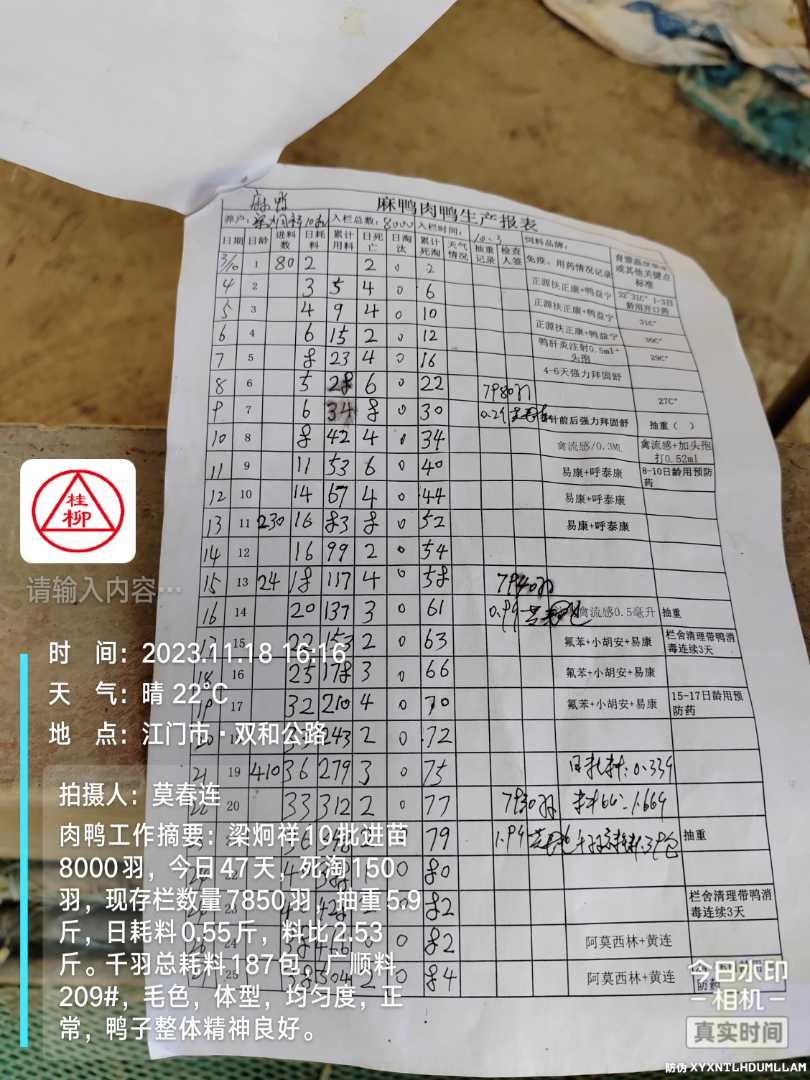 麻鸭
麻鸭肉鸭生产报表
养户: 入栏总数:8000 入栏时间:10.3 饲料品牌:
日期 日龄 进料数 日耗料 累计用料 日死亡 日淘汰 累计死淘 天气情况 抽重记录 检查人签 免疫、用药情况记录 或其他关键点标准
3/10 1 80 2 2 0 2
4 2 3 5 4 0 6 正源扶正康+鸭益宁 1-3日龄用开口药
5 3 4 9 4 0 10 正源扶正康+鸭益宁 31C°
6 4 6 15 2 0 12 正源扶正康+鸭益宁 30C°
7 5 8 23 4 0 16 鸭肝炎注射0.5ml+头孢 29C°
8 6 5 28 6 0 22 7980羽 4-6天强力拜固舒 27C°
9 7 6 34 8 0 30 针前后强力拜固舒 抽重( )
10 8 8 42 4 0 34 禽流感/0.3ML 禽流感+加头孢打0.52ml
11 9 11 53 6 0 40 易康+呼泰康 8-10日龄用预防药
12 10 14 67 4 0 44 易康+呼泰康
13 11 230 16 83 8 0 52 易康+呼泰康
14 12 16 99 2 0 54
15 13 24 18 117 4 0 58 7940羽
16 14 20 137 3 0 61 禽流感0.5毫升 抽重
17 15 22 153 2 0 63 氟苯+小胡安+易康 栏舍清理带鸭消毒连续3天
18 16 25 178 3 0 66 氟苯+小胡安+易康
19 17 32 210 4 0 70 氟苯+小胡安+易康 15-17日龄用预防药
20 243 2 0 72
21 19 410 36 279 3 0 75 日耗料:0.339
22 20 33 312 2 0 77 7930羽
79 抽重
0 80
23 0 82 栏舍清理带鸭消毒连续3天
24 0 82 阿莫西林+黄连
25 504 2 0 84 阿莫西林+黄连
桂柳
请输入内容…
时 间：2023.11.18 16:16
天 气：晴 22℃
地 点：江门市·双和公路
拍摄人：莫春连
肉鸭工作摘要：梁炯祥10批进苗
8000羽，今日47天，死淘150
羽，现存栏数量7850羽，抽重5.9
斤，日耗料0.55斤，料比2.53
斤。千羽总耗料187包，广顺料
209#，毛色，体型，均匀度，正
常，鸭子整体精神良好。
今日水印
相机
真实时间
防伪 XYXNTLHDUMLLAM